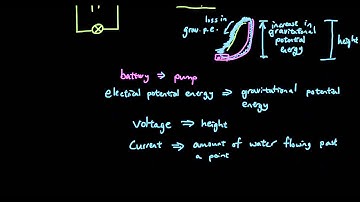 loss in
grav. p.e.
increase in
gravitational
potential
energy
height
battery ⇒ pump
electrical potential energy ⇒ gravitational potential
energy
voltage ⇒ height
Current ⇒ amount of water flowing past
a point